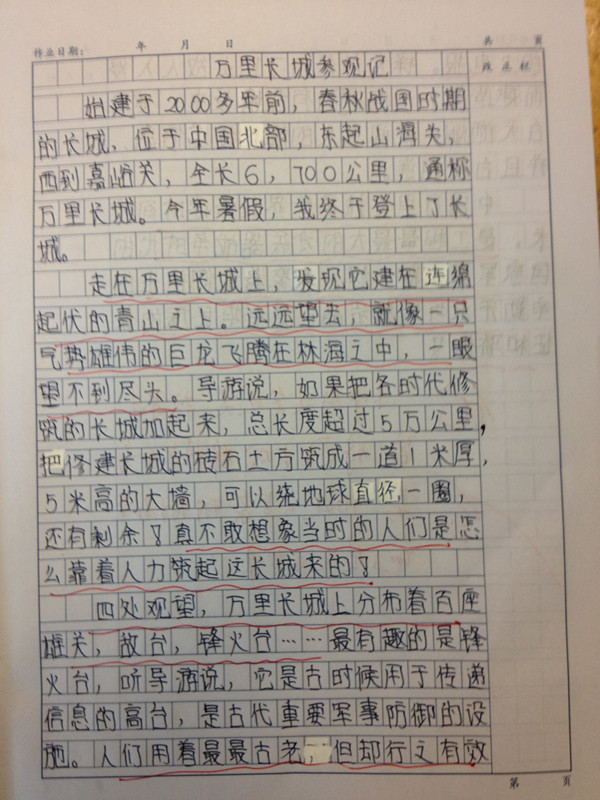 作业日期： 年 月 日 共 页
万里长城参观记 改正栏
始建于2000多年前，春秋战国时期
的长城，位于中国北部，东起山海关，
西到嘉峪关，全长6，700公里，通称
万里长城。今年暑假，我终于登上了长
城。
走在万里长城上，发现它建在连绵
起伏的青山之上。远远望去，就像一只
气势雄伟的巨龙飞腾在林海之中，一眼
望不到尽头。导游说，如果把各时代修
筑的长城加起来，总长度超过5万公里，
把修建长城的砖石土方筑成一道1米厚，
5米高的大墙，可以绕地球直径一圈，
还有剩余！真不敢想象当时的人们是怎
么靠着人力筑起这长城来的！
四处观望，万里长城上分布着百座
雄关，敌台，锋火台……最有趣的是锋
火台，听导游说，它是古时候用于传递
信息的高台，是古代重要军事防御的设
施。人们用着最最古老，但却行之有效
第 页